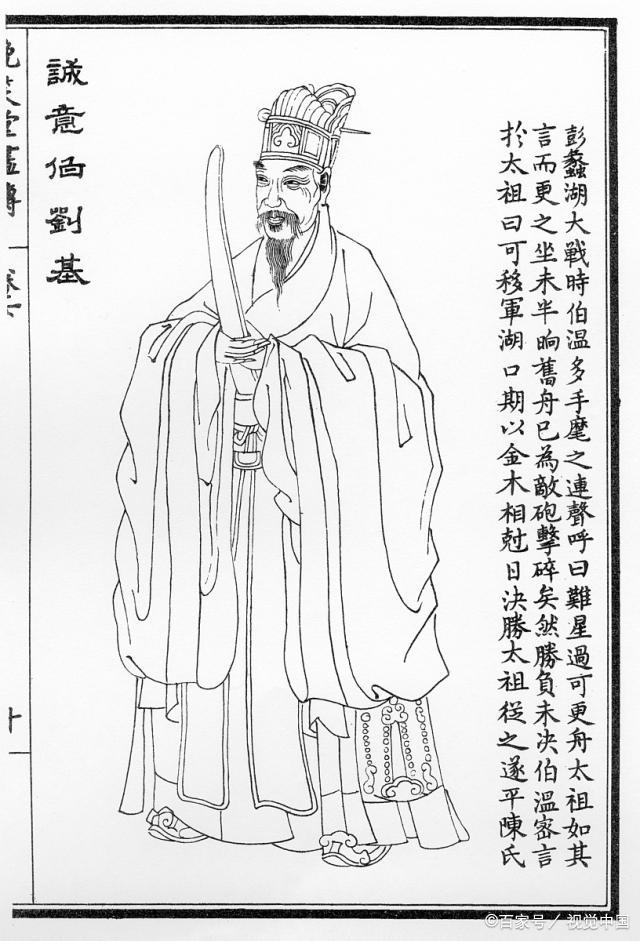 彭蠡湖大戰時伯溫多手麾之連聲呼曰難星過可更舟太祖如其
言而更之坐未半晌舊舟已為敵砲擊碎矣然勝負未決伯溫密言
於太祖曰可移軍湖口期以金木相尅日決勝太祖從之遂平陳氏
誠意伯劉基
©百家号／视觉中国